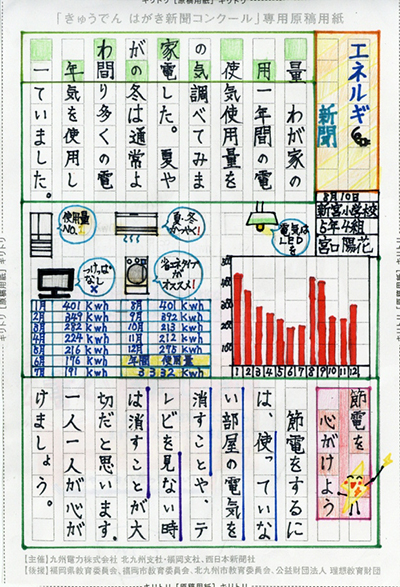 「きゅうでん はがき新聞コンクール」専用原稿用紙
エネルギー
新聞
8月10日
新宮小学校
5年4組
宮口陽花
わが家の
一年間の電気使用量
わが家の
一年間の電
気使用量を
調べてみま
した。夏や
冬は通常よ
り多くの電
気を使用し
ていました。
電気は
LEDを
夏・冬
かつやく!
使用量
NO.1
省エネタイプ
がオススメ!
つけっぱ
なし×
1月 401 Kwh 8月 401 Kwh
2月 349 Kwh 9月 392 Kwh
3月 282 Kwh 10月 213 Kwh
4月 224 Kwh 11月 212 Kwh
5月 216 Kwh 12月 295 Kwh
6月 176 Kwh 年間使用量
7月 191 Kwh 3352 Kwh
1 2 3 4 5 6 7 8 9 10 11 12
節電を
心がけよう
節電をするに
は、使っていな
い部屋の電気を
消すことや、テ
レビを見ない時
は消すことが大
切だと思います。
一人一人が心が
けましょう。
【主催】九州電力株式会社 北九州支社・福岡支社、西日本新聞社
【後援】福岡県教育委員会、福岡市教育委員会、北九州市教育委員会、公益財団法人 理想教育財団
キリトリ【原稿用紙】キリトリ
キリトリ【原稿用紙】キリトリ